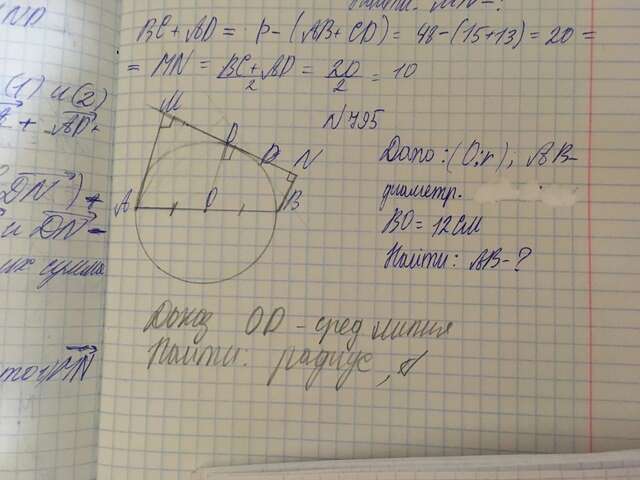 BC + AD = P - (AB + CD) = 48 - (15 + 13) = 20 =
= MN = BC + AD / 2 = 20 / 2 = 10
N 795
(1) и (2)
AD +
DN ) +
и DN -
их суммы
MN
M
D
P
N
A
O
B
Дано: (O; r), AB -
диаметр.
BO = 12 см
Найти: AB - ?
Доказ OD - сред линия
Найти: радиус, d